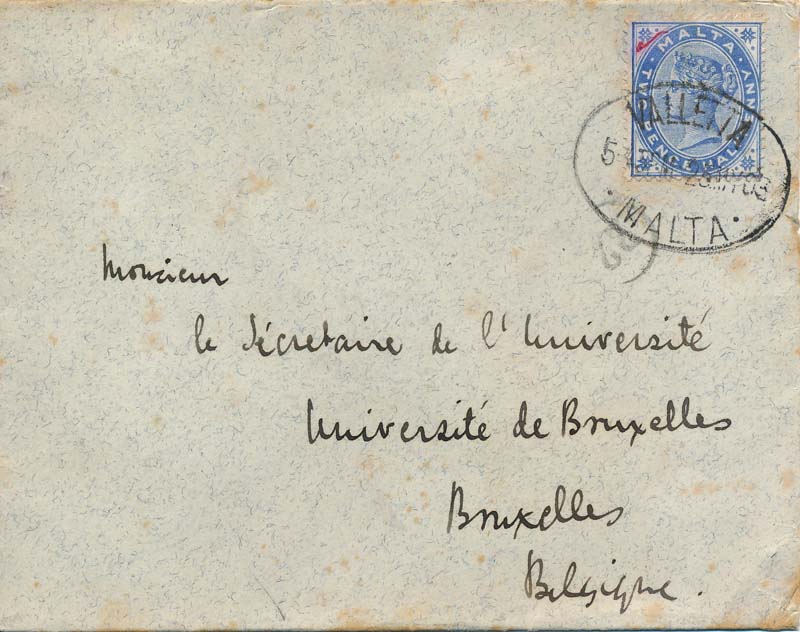 MALTA
TWO PENCE HALF PENNY
VALLETTA
MALTA
Monsieur
le Sécretaire de l'Université
Université de Bruxelles
Bruxelles
Belgique.